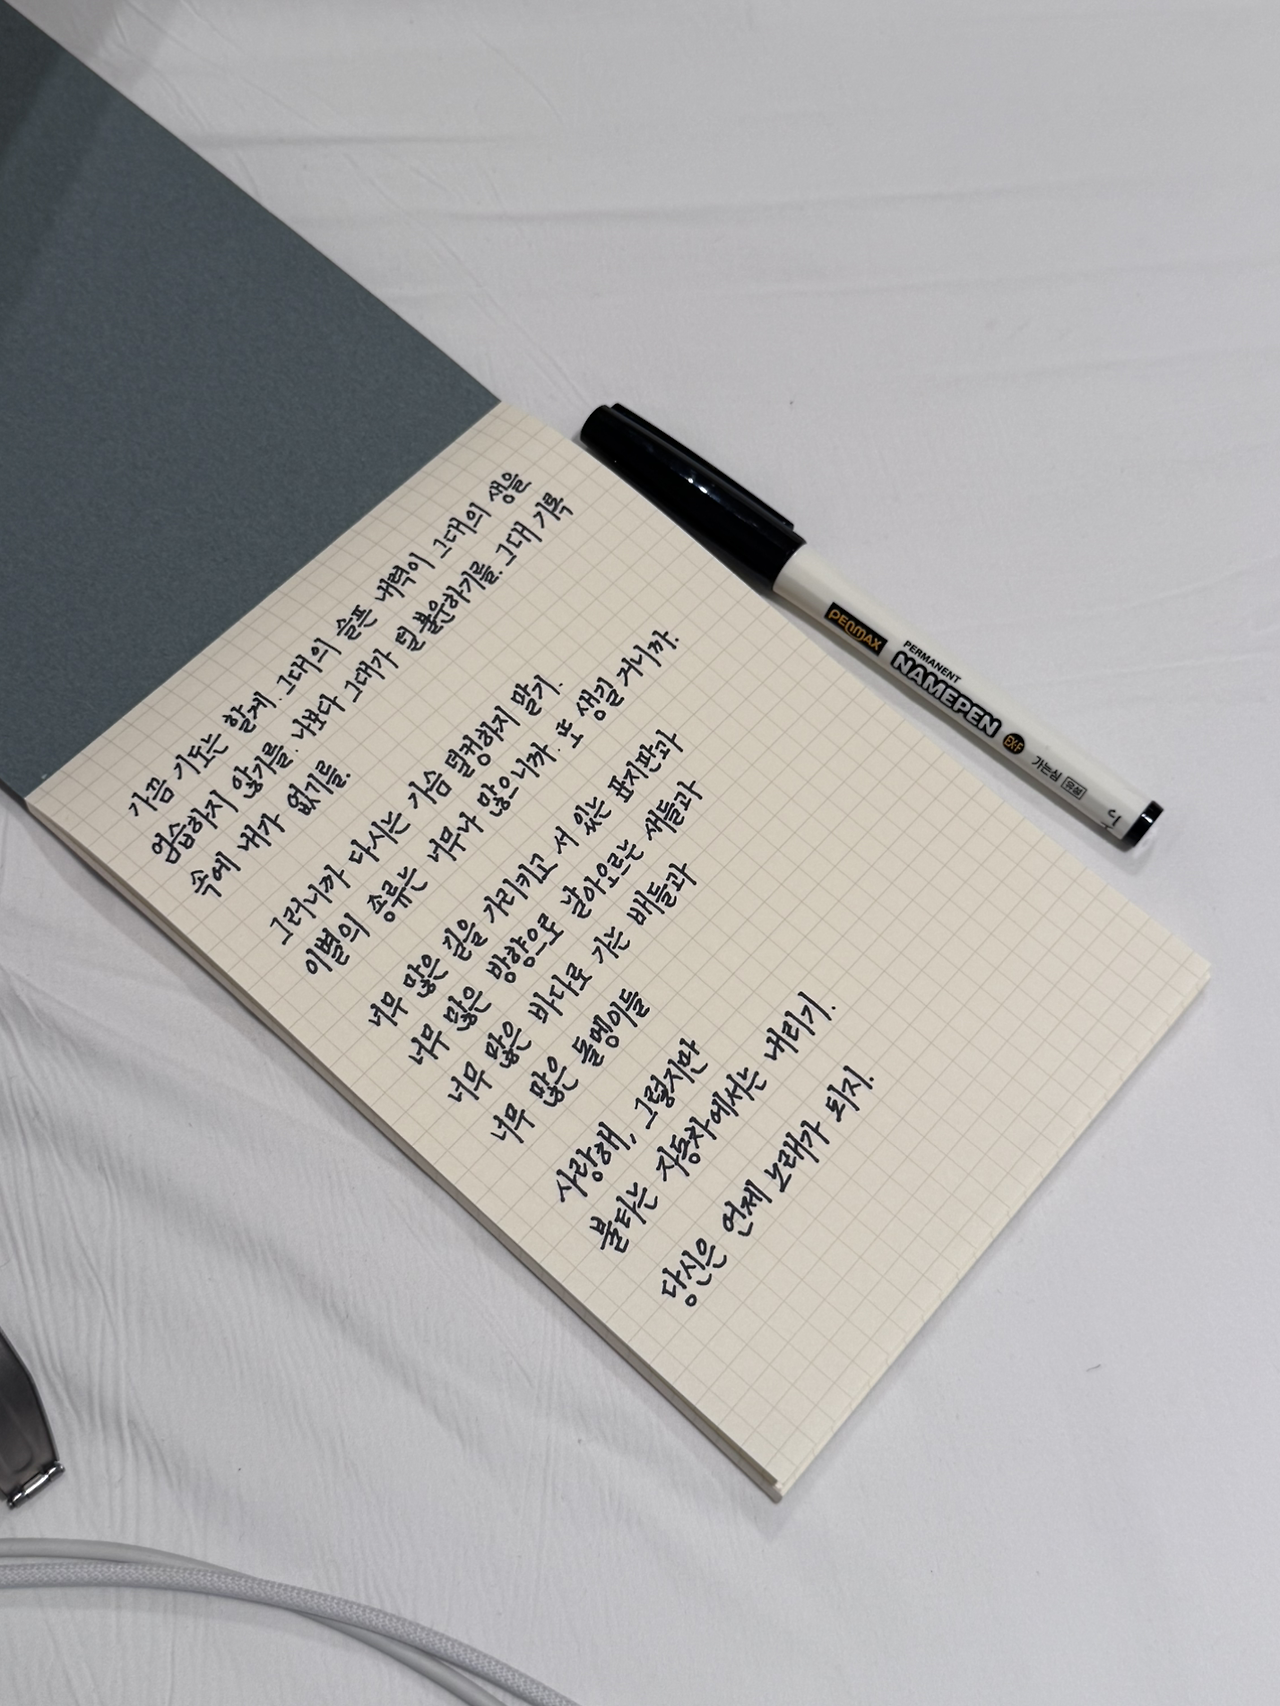 가끔 기도는 할게. 그대의 슬픈 내력이 그대의 생을
엄습하지 않기를. 나보다 그대가 덜 불운하기를. 그대 기록
속에 내가 없기를.
그러니까 다시는 가슴 덜컹하지 말기.
이별의 종류는 너무나 많으니까. 또 생길 거니까.
너무 많은 길을 가리키고 서 있는 표지판과
너무 많은 방향으로 날아오르는 새들과
너무 많은 바다로 가는 배들과
너무 많은 돌멩이들
사랑해, 그렇지만
불타는 자동차에서는 내리기.
당신은 언제 노래가 되지.
PENMAX
PERMANENT
NAMEPEN
EX·F
가는심 유성